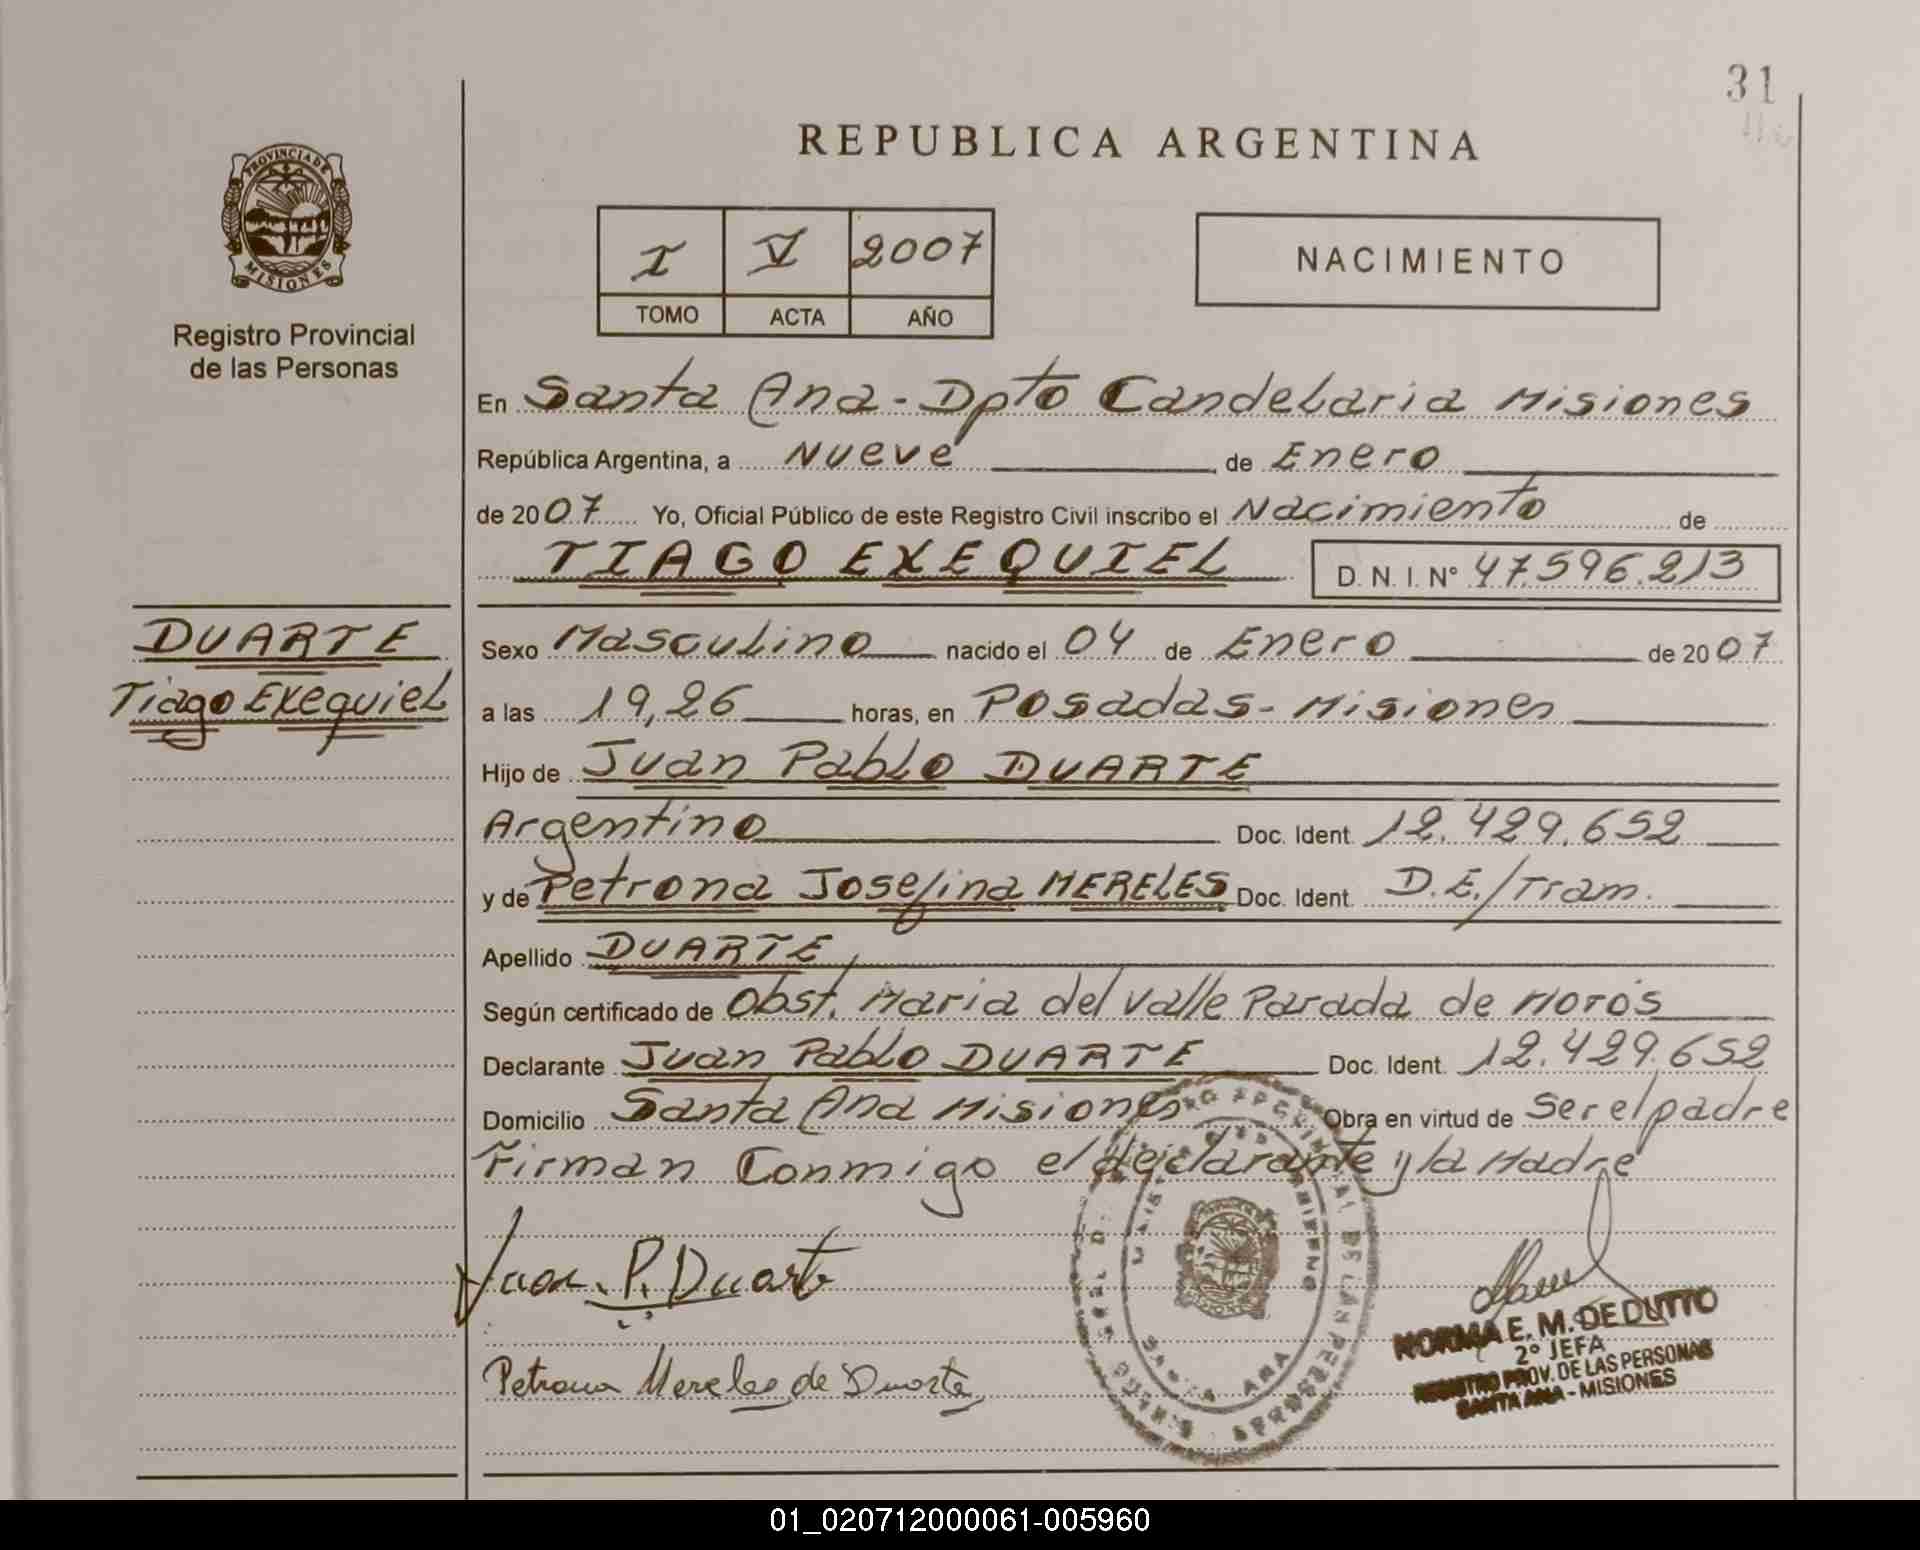 31
REPUBLICA ARGENTINA
PROVINCIA DE
MISIONES
Registro Provincial
de las Personas
I V 2007
TOMO ACTA AÑO
NACIMIENTO
En Santa Ana - Dpto Candelaria Misiones
República Argentina, a Nueve de Enero
de 2007 Yo, Oficial Público de este Registro Civil inscribo el Nacimiento de
TIAGO EXEQUIEL D. N. I. Nº 47.596.213
DUARTE
Tiago Exequiel
Sexo Masculino nacido el 04 de Enero de 2007
a las 19,26 horas, en Posadas - Misiones
Hijo de Juan Pablo DUARTE
Argentino Doc. Ident. 12.429.652
y de Petrona Josefina MERELES Doc. Ident. D.E./Tram.
Apellido DUARTE
Según certificado de Obst. Maria del Valle Parada de Morós
Declarante Juan Pablo DUARTE Doc. Ident. 12.429.652
Domicilio Santa Ana Misiones Obra en virtud de Ser el padre
Firman Conmigo el declarante y la Madre
Juan P. Duarte
Petrona Mereles de Duarte
SANTA ANA
NORMA E. M. DE DUTTO
2º JEFA
REGISTRO PROV. DE LAS PERSONAS
SANTA ANA - MISIONES
01_020712000061-005960